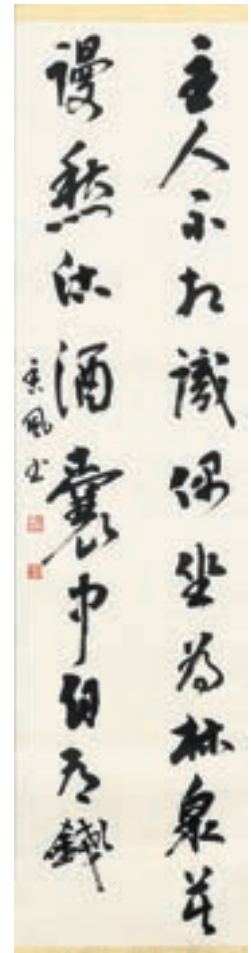 主人不相識偶坐為林泉莫
謾愁沽酒囊中自有錢
風書